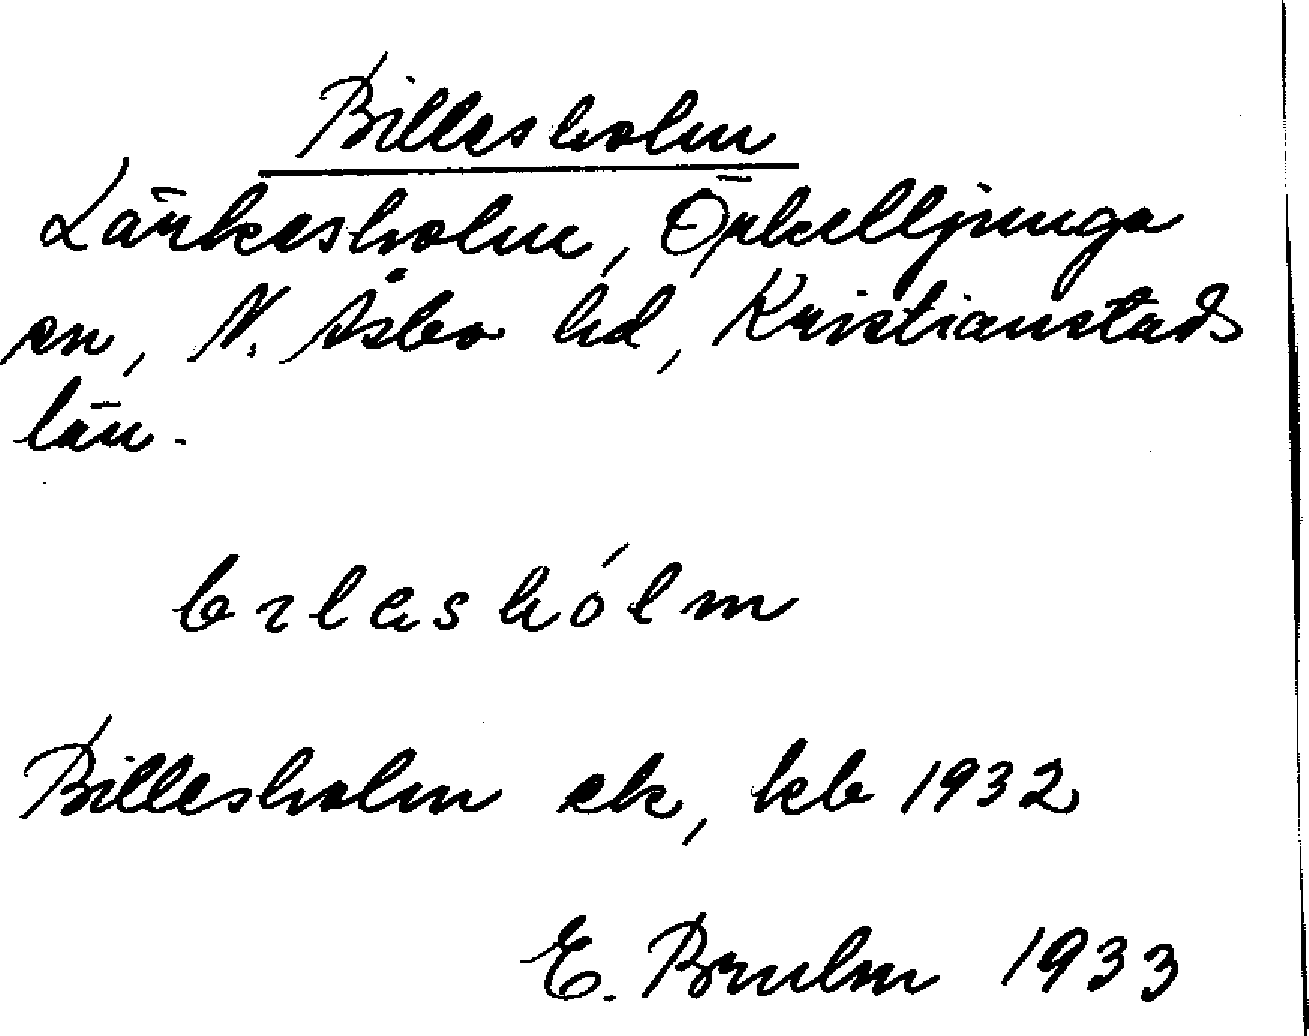 Billesholm
Lärkesholm, Örkelljunga
sn, N. Åsbo hd, Kristianstads
län.
bɪlɛshólm
Billesholm ek, kb 1932
E. Bruhn 1933